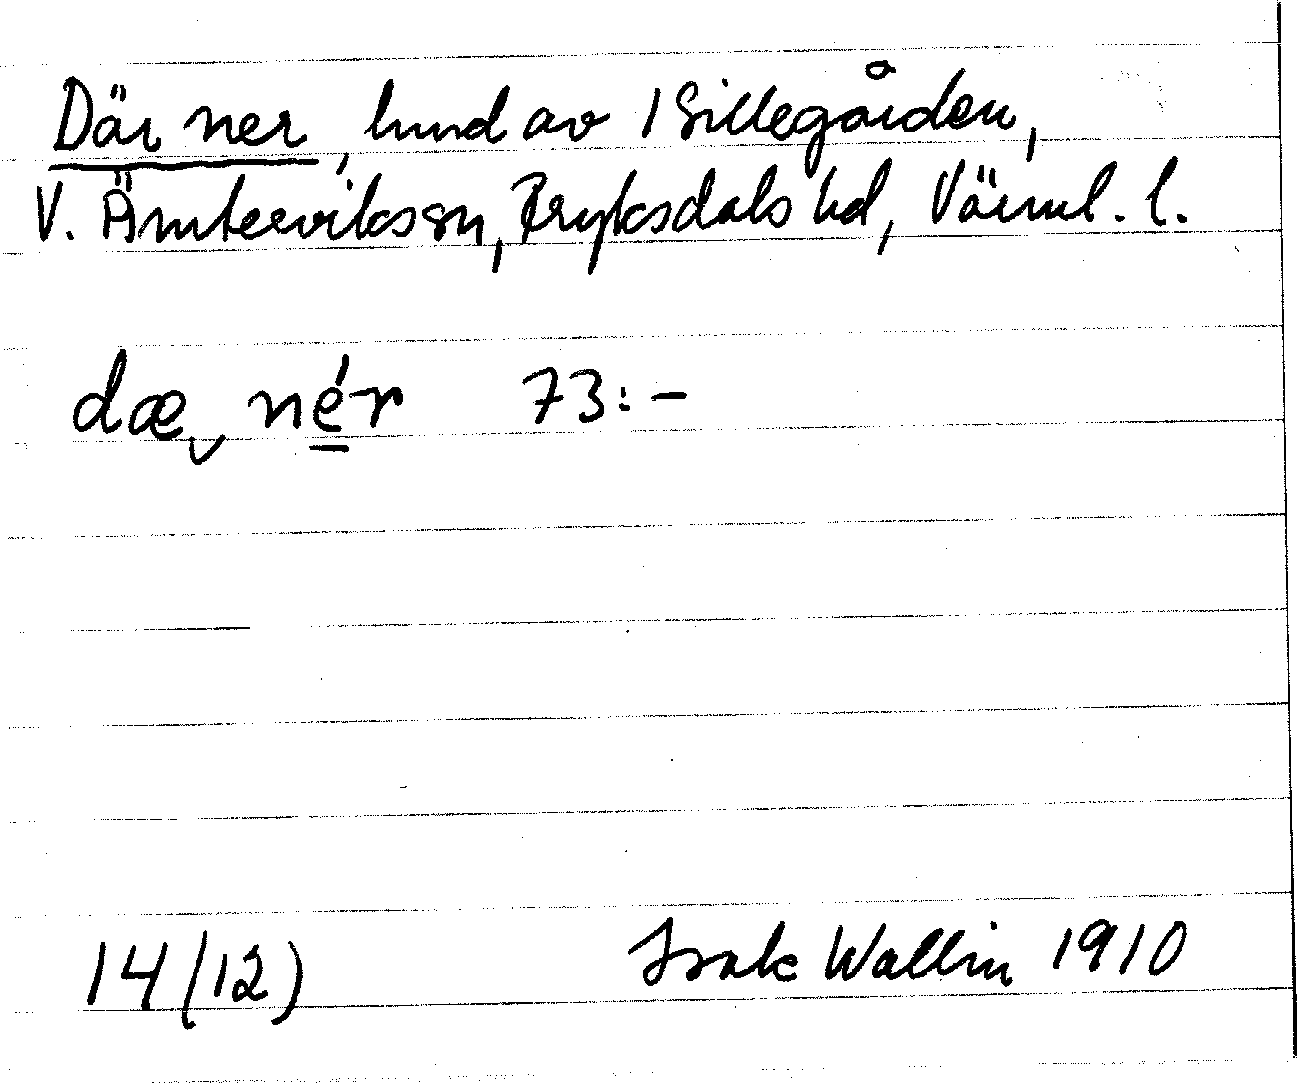 Där ner, lund av 1 Sillegården,
V. Ämterviks sn, Fryksdals hd, Värml. l.
dæ˯ nér 73:-
14(12) Isak Wallin 1910